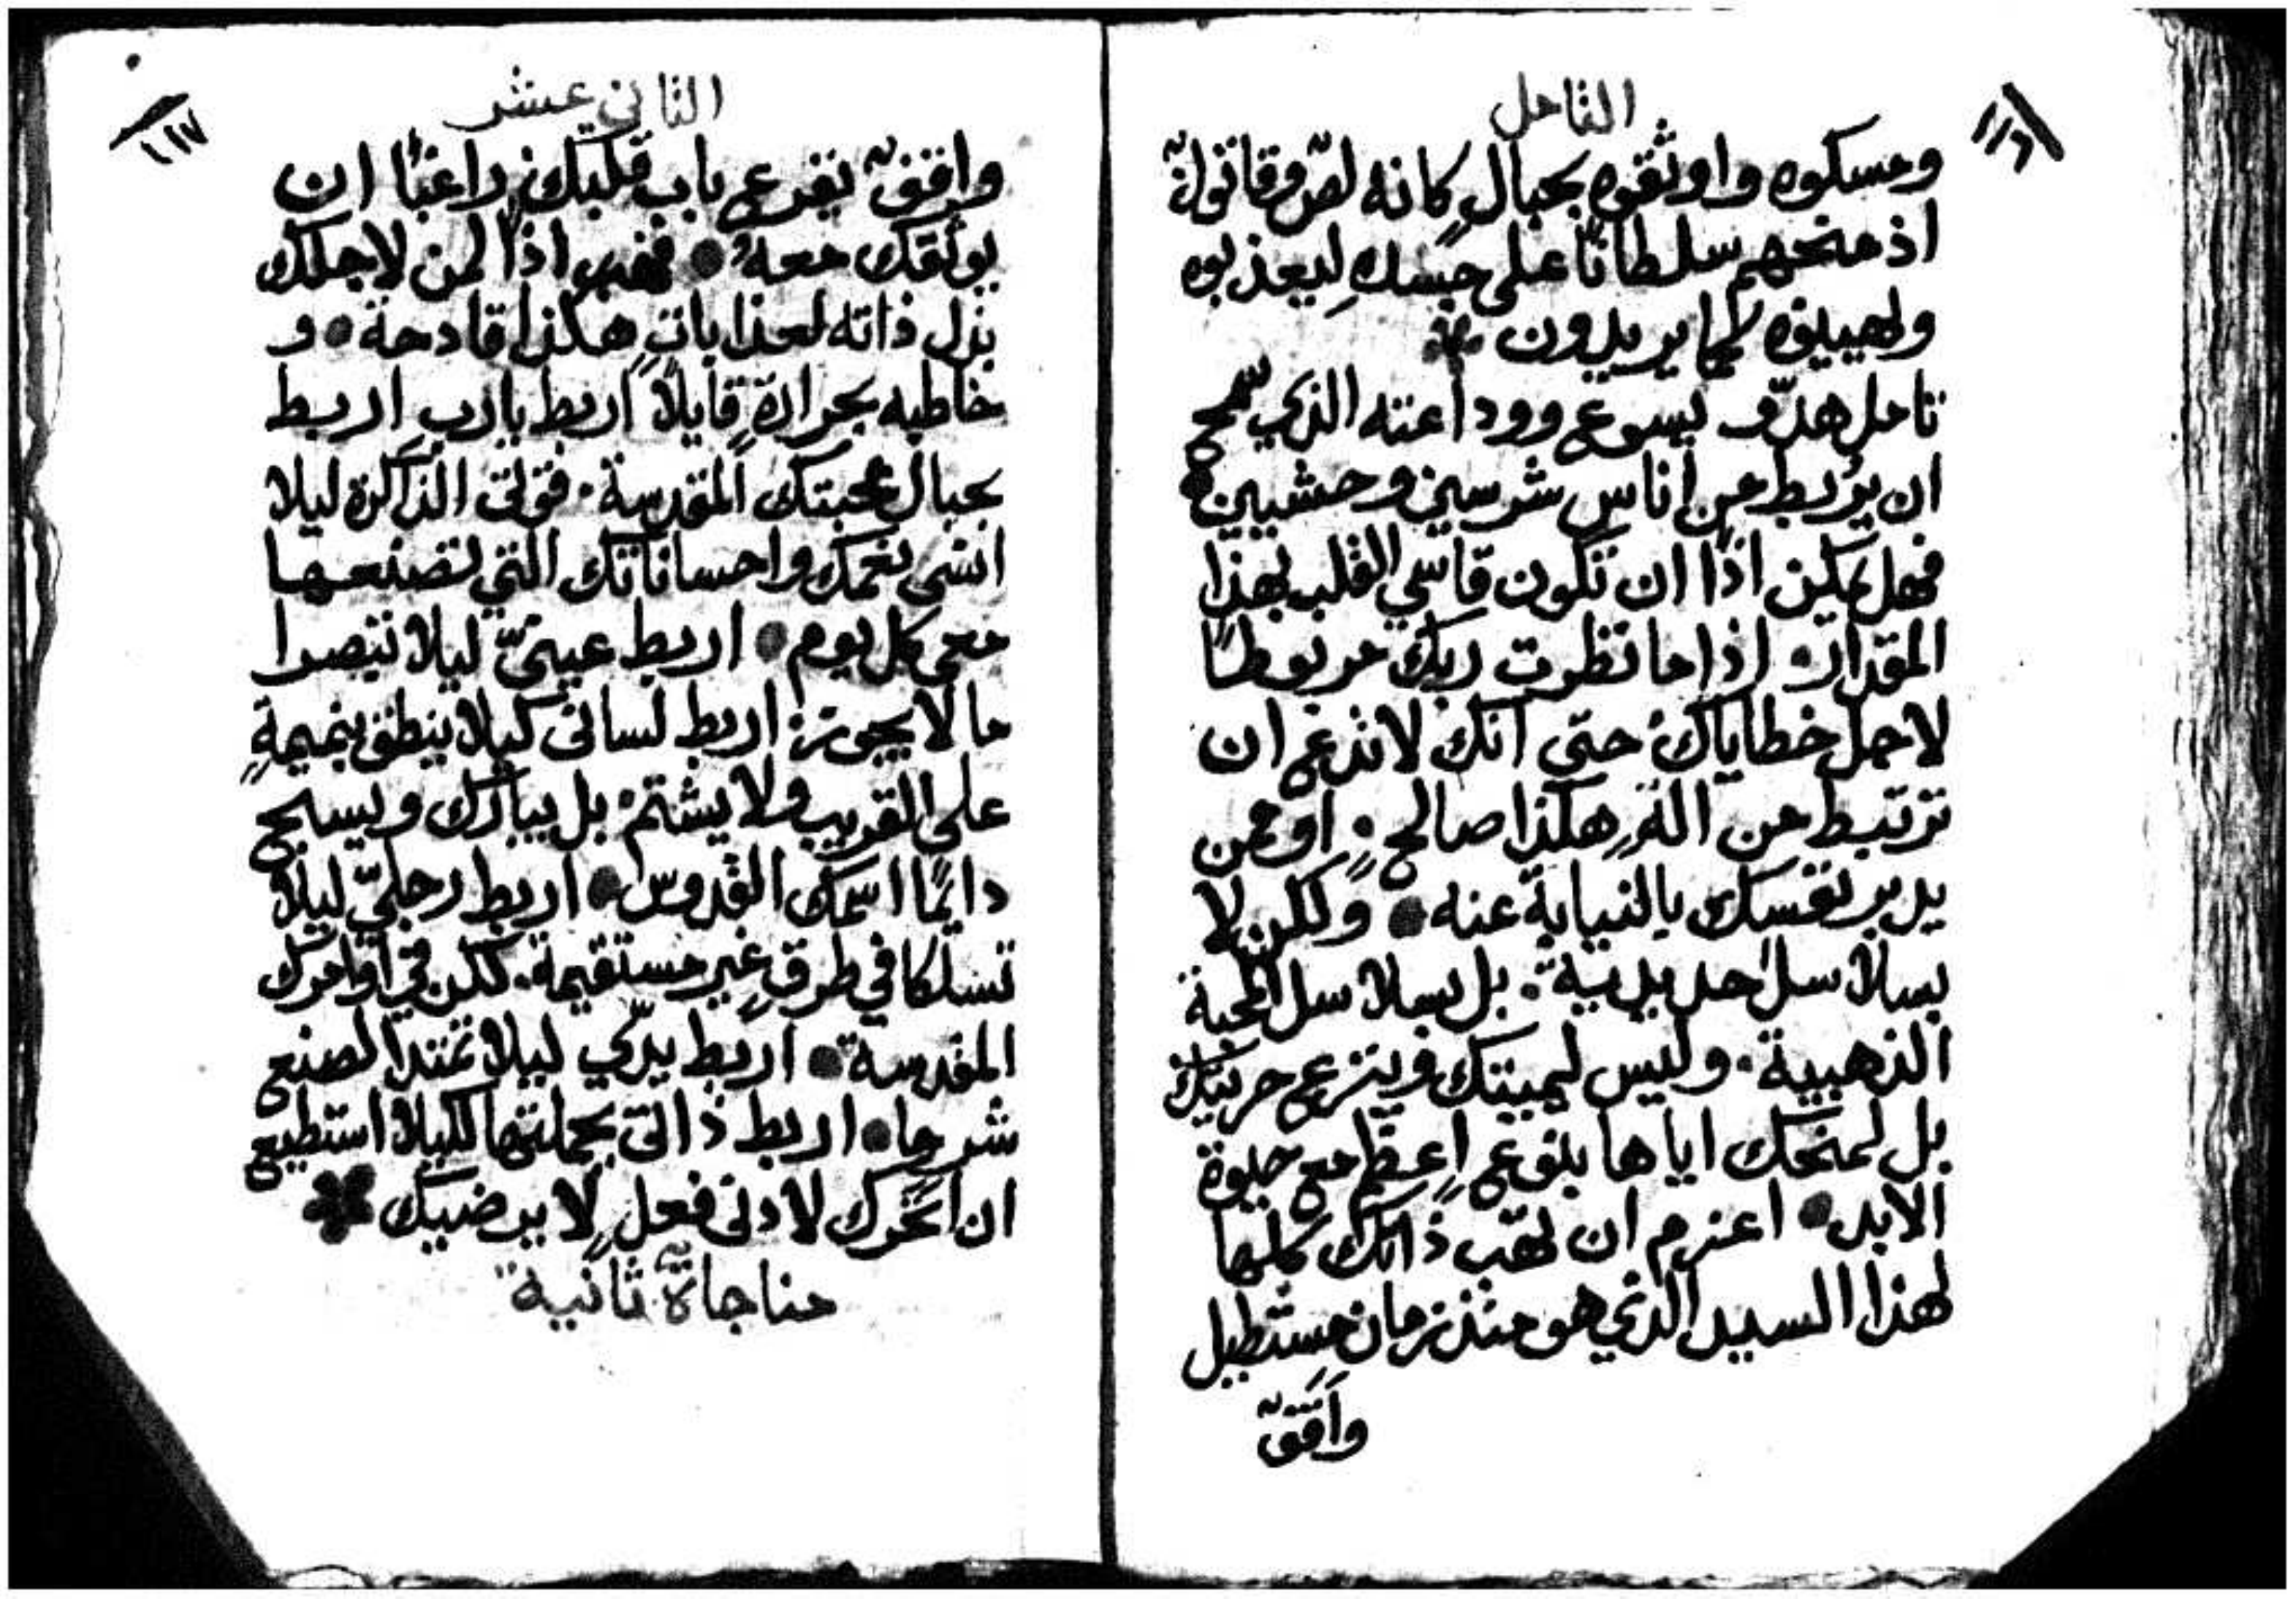 التامل
١١٦
ومسكوه واوثقوه بحبالٍ كانه لصّ وقاتولٌ
اذ منحهم سلطانًا على جسدهِ ليعذبوه
ويهينوه كما يريدون
تامل هدّو يسوع ووداعته الذي سمح
ان يُربط من اناسٍ شرسين وحشيين
فهل يمكن اذًا ان تكون قاسي القلب بهذا
المقدار اذا ما نظرت ربك مربوطًا
لاجل خطاياك حتى انك لا تذعن ان
ترتبط من الهٍ هكذا صالحٍ او ممن
يدبر نفسك بالنيابة عنه ولكن لا
بسلاسل حديدية بل بسلاسل المحبة
الذهبية وليس ليميتك وينزع حريتك
بل لمنحك اياها بنوعٍ اعظم مع حيوة
الابد اعزم ان تهب ذاتك كلها
لهذا السيد الذي هو منذ زمان مستطيل
واقفٌ
الثاني عشر
١١٧
واقفٌ يقرع باب قلبك راغبًا ان
يوثقك معهُ فهب اذًا لمن لاجلك
بذل ذاته لعذاباتٍ هكذا قادحة و
خاطبه بحرارةٍ قايلًا اربط يا رب اربط
بحبال محبتك المقدسة قوتي الذاكرة ليلا
انسى نعمك واحساناتك التي تصنعها
معي كل يوم اربط عينيّ ليلا تبصرا
ما لا يجوز اربط لساني كيلا ينطق بنميمةٍ
على القريب ولا يشتم بل يبارك ويسبح
دايمًا اسمك القدوس اربط رجليّ ليلا
تسلكا في طرقٍ غير مستقيمة لكن في اوامرك
المقدسة اربط يديّ ليلا تمتدا لصنع
شرٍ ما اربط ذاتي بجملتها لكيلا استطيع
ان اتحرك لادنى فعلٍ لا يرضيك
مناجاة ثانية